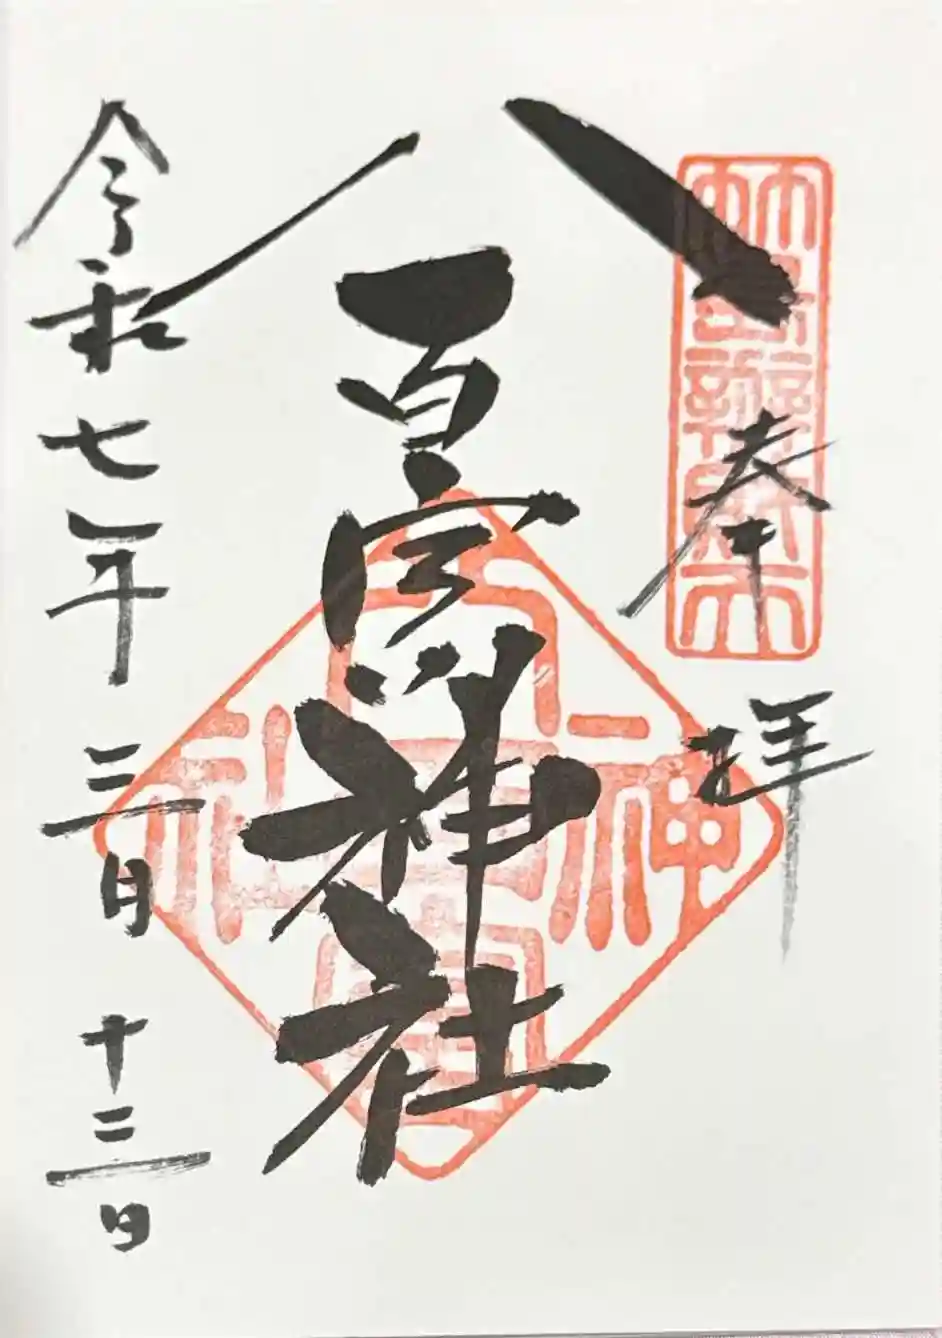 奉拝
八百富神社
令和七年三月十三日